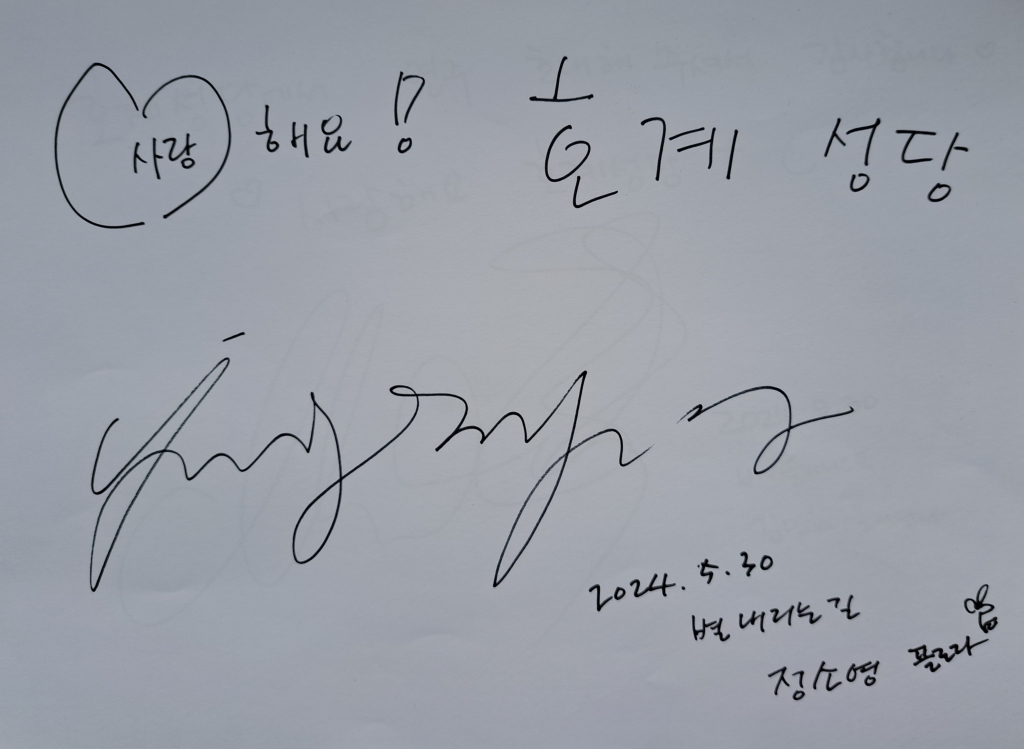 사랑 해요! 호계 성당
2024. 5. 30
별 내리는 길
정소영 플로라